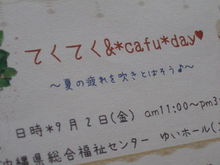 てくてく&*cafu*day♥
～夏の疲れを吹きとばそう♪～
日時*9月2日(金) am11:00～pm3
沖縄県総合福祉センター ゆいホール(